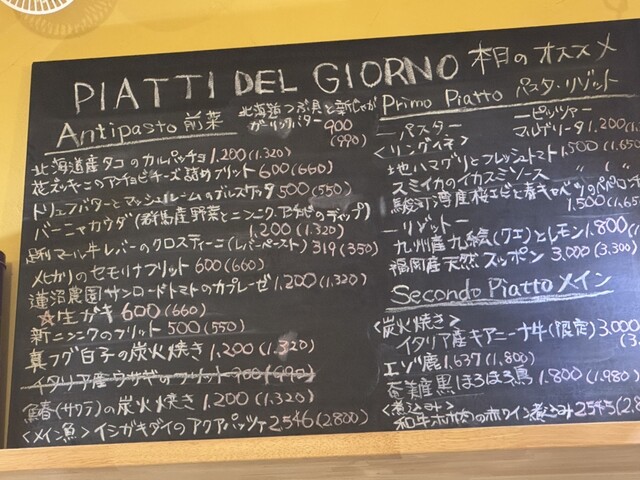 PIATTI DEL GIORNO 本日のオススメ
Antipasto 前菜
北海道つぶ貝と新じゃが
ガーリックバター 900
(990)
北海道産タコのカルパッチョ 1,200 (1,320)
花ズッキーニのアンチョビチーズ詰めフリット 600 (660)
トリュフバターとマッシュルームのブルスケッタ 500 (550)
バーニャカウダ (群馬産野菜とニンニク、アンチョビのディップ)
1,200 (1,320)
マール牛レバーのクロスティーニ (レバーペースト) 319 (350)
メヒカリのセモリナフリット 600 (660)
蓮沼農園サンロードトマトのカプレーゼ 1,200 (1,320)
☆生ガキ 600 (660)
新ニンニクのフリット 500 (550)
真フグ白子の炭火焼き 1,200 (1,320)
イタリア産ウサギのフリット 900 (990)
鰆 (サワラ) の炭火焼き 1,200 (1,320)
<メイン魚> イシガキダイのアクアパッツァ 2546 (2,800)
Primo Piatto パスタ・リゾット
ーパスター
ーピッツァー
マルゲリータ 1,200 (1,3
<リングイネ>
地ハマグリとフレッシュトマト 1,500 (1,650
スミイカのイカスミソース 〃 〃
駿河湾産桜エビと春キャベツのペペロンチ
1,500 (1,65
ーリゾットー
九州産九絵 (クエ) とレモン 1,800 (1
福岡産天然スッポン 3,000 (3,300)
Secondo Piatto メイン
<炭火焼き>
イタリア産キアニーナ牛 (限定) 3,000
(3,
エゾ鹿 1,637 (1,800)
奄美雄黒ほろほろ鳥 1,800 (1,980)
<煮込み>
和牛ホホ肉の赤ワイン煮込み 2545 (2,80